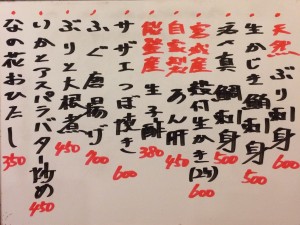 天然 ぶり刺身 600
生かじき鮪刺身 500
活〆真鯛刺身 500
宮城産 殻付生かき(2ケ) 600
自家製 あん肝 450
能登産 生子酢 380
サザエつぼ焼き 600
ふぐ 唐揚げ 700
ぶりと大根煮 450
いかとアスパラバター炒め 450
なの花おひたし 350